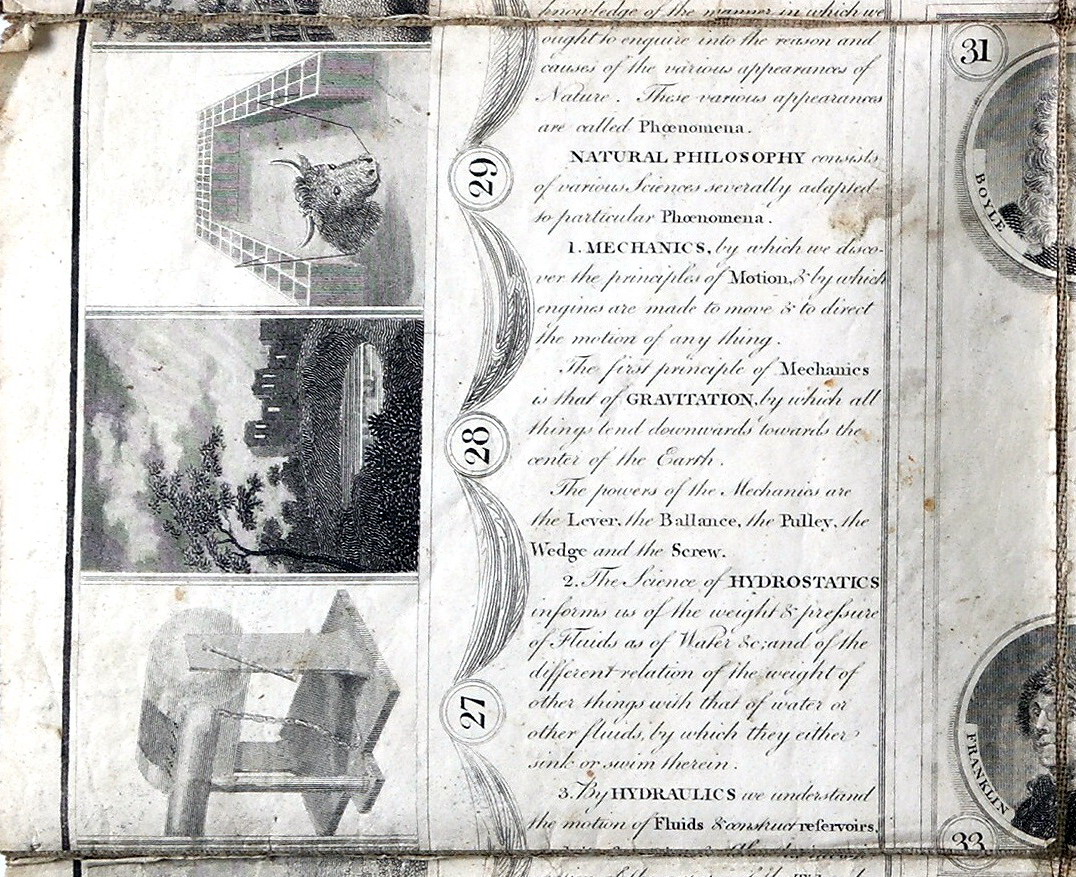 knowledge of the manner in which we
ought to enquire into the reason and
causes of the various appearances of
Nature. These various appearances
are called Phœnomena.
NATURAL PHILOSOPHY consists
of various Sciences severally adapted
to particular Phœnomena.
1. MECHANICS, by which we disco-
ver the principles of Motion, & by which
engines are made to move & to direct
the motion of any thing.
The first principle of Mechanics
is that of GRAVITATION, by which all
things tend downwards towards the
center of the Earth.
The powers of the Mechanics are
the Lever, the Ballance, the Pulley, the
Wedge and the Screw.
2. The Science of HYDROSTATICS
informs us of the weight & preſsure
of Fluids as of Water &c; and of the
different relation of the weight of
other things with that of water or
other fluids, by which they either
sink or swim therein.
3. By HYDRAULICS we understand
the motion of Fluids & construct reſervoirs,
29
28
27
31
BOYLE
FRANKLIN
33